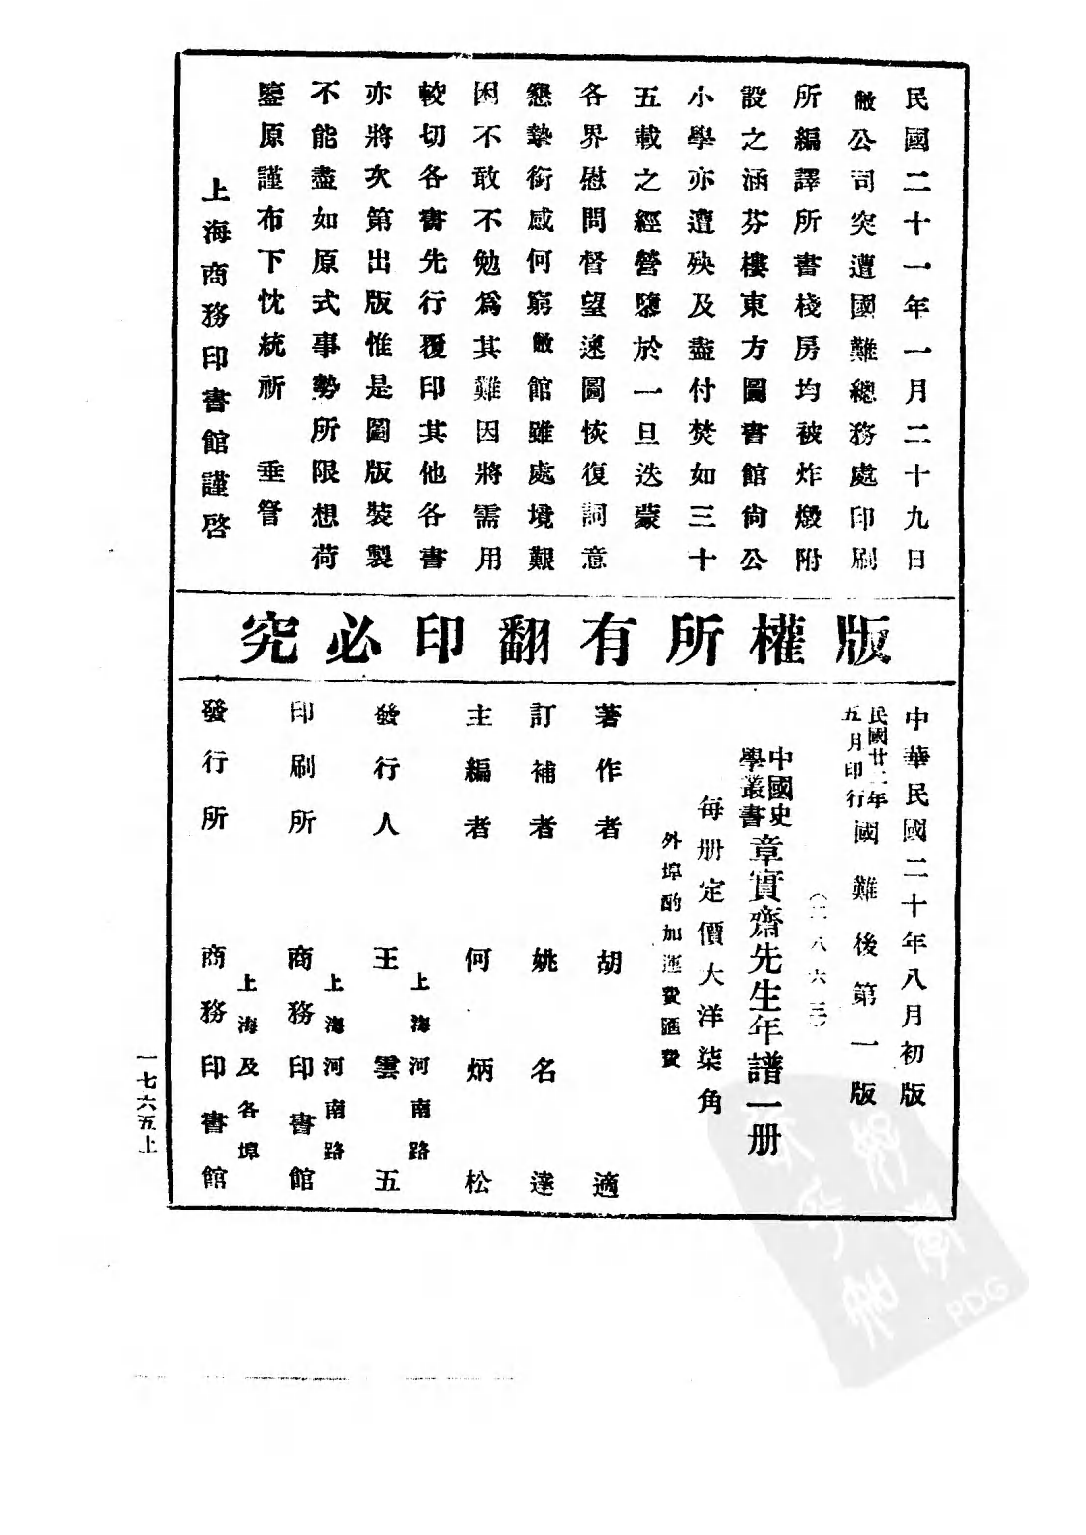 民國二十一年一月二十九日
敝公司突遭國難總務處印刷
所編譯所書棧房均被炸燬附
設之涵芬樓東方圖書館尙公
小學亦遭殃及盡付焚如三十
五載之經營隳於一旦迭蒙
各界慰問督望速圖恢復詞意
懇摯銜感何窮敝館雖處境艱
困不敢不勉爲其難因將需用
較切各書先行覆印其他各書
亦將次第出版惟是圖版裝製
不能盡如原式事勢所限想荷
鑒原謹布下忱統祈 垂詧
上海商務印書館謹啓
版權所有翻印必究
中華民國二十年八月初版
民國廿二年五月印行國難後第一版
八六三
中國史學叢書章實齋先生年譜一册
每册定價大洋柒角
外埠酌加運費匯費
著作者 胡適
訂補者 姚名達
主編者 何炳松
發行人 王雲五 上海河南路
印刷所 商務印書館 上海河南路
發行所 商務印書館 上海及各埠
一七六五上
PDG